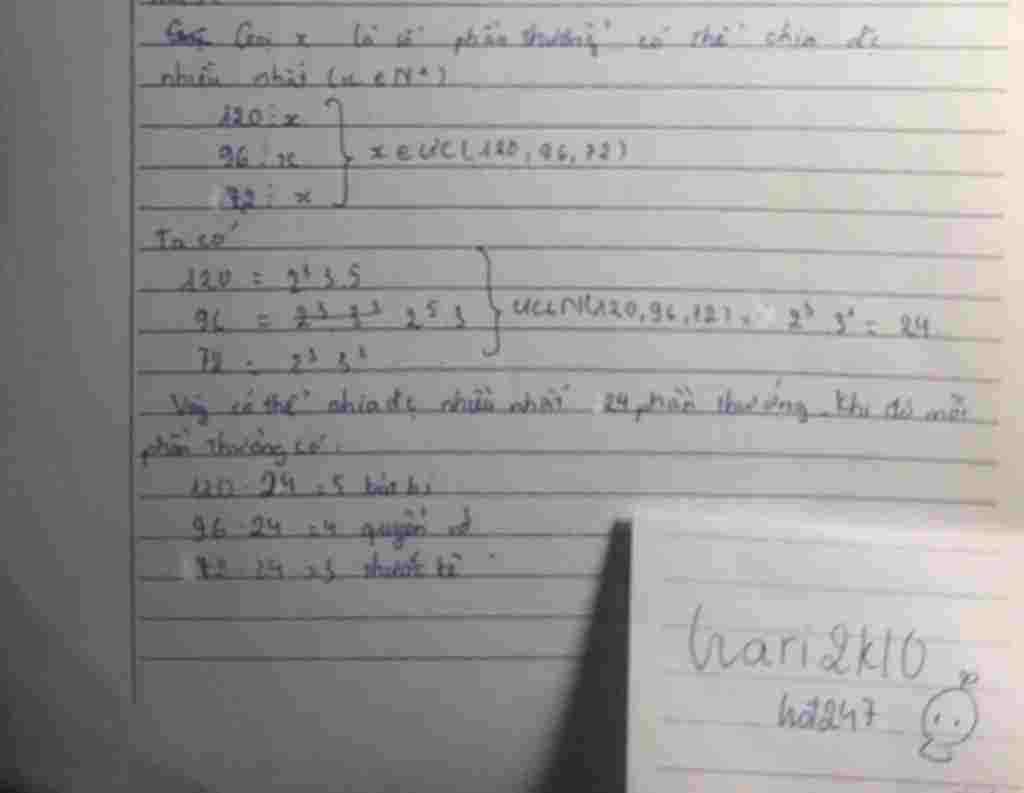 Gọi x là số phần thưởng có thể chia đc
nhiều nhất (x ∈ N*)
120 ⋮ x
96 ⋮ x
72 ⋮ x
x ∈ ƯC(120, 96, 72)
Ta có
120 = 2³ 3 5
96 = 2⁵ 3
72 = 2³ 3²
ƯCLN(120, 96, 72) = 2³ 3¹ = 24
Vậy có thể chia đc nhiều nhất 24 phần thưởng. Khi đó mỗi
phần thưởng có:
120 : 24 = 5 bút bi
96 : 24 = 4 quyển vở
72 : 24 = 3 thước kẻ
hari2k10
hd247